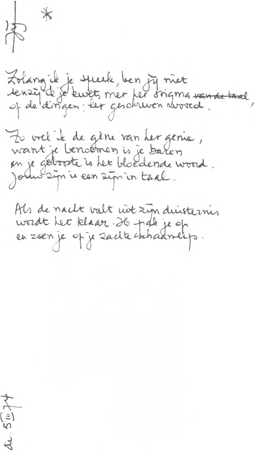 Jij *
Zolang ik je spreek, ben jij niet
tenzij ik je kwets met het stigma van de taal,
of de dingen: het geschreven woord.
Zo voel ik de gêne van het genie,
want je benoemen is je baren
en je geboorte is het bloedende woord.
Jouw zijn is een zijn in taal.
Als de nacht valt uit zijn duisternis
wordt het klaar. Ik je op
en zoen je op je zachte schaamlip.
di. 5 III 74